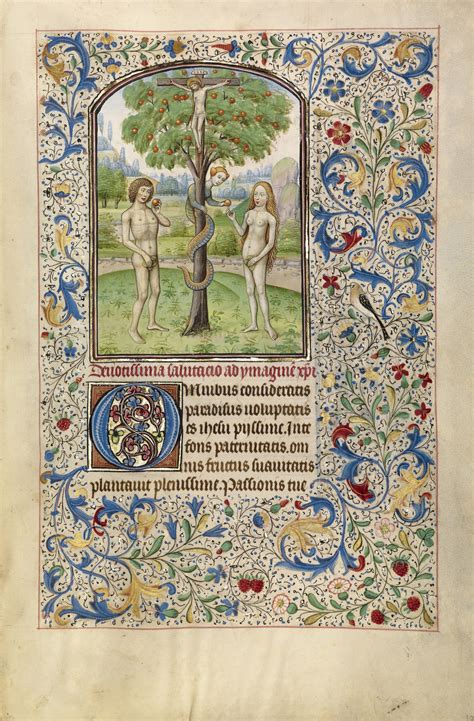 Deuotissima salutacio ad ymagine xpi
Omnibus consideratis
paradisus voluptatis
es ihesu pyssime. Inte
fons paternitatis. om
nis fructus suauitatis
plantauit plenissime. Passionis tue